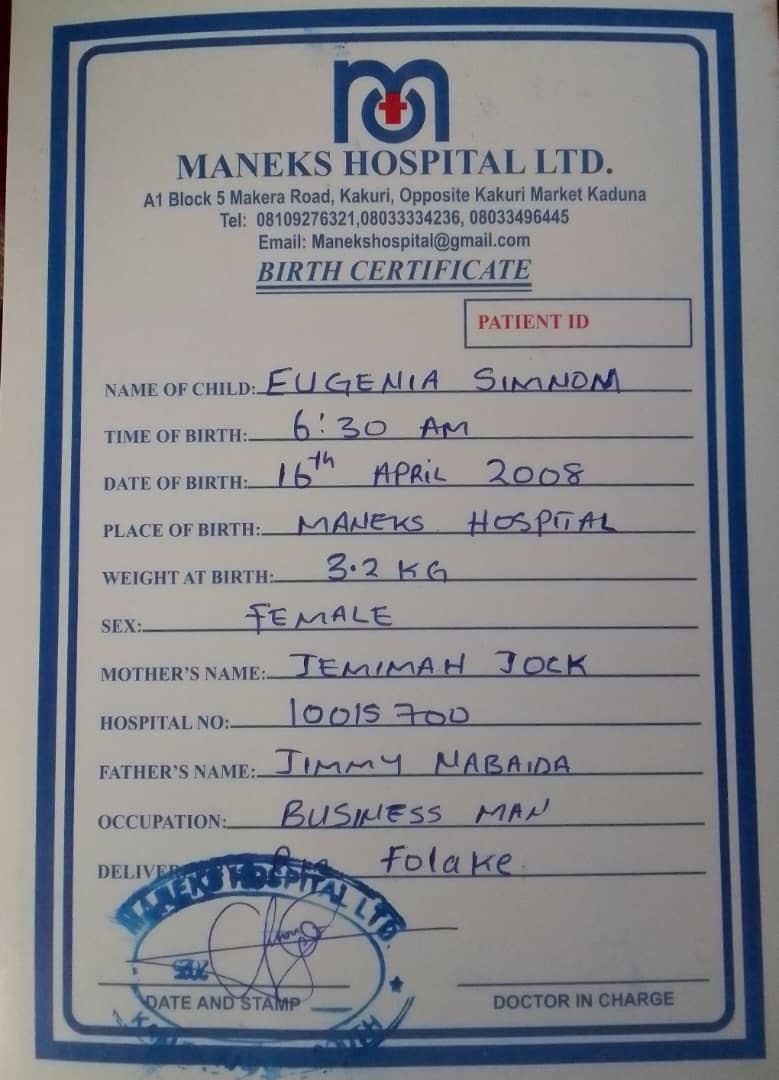 MANEKS HOSPITAL LTD.
A1 Block 5 Makera Road, Kakuri, Opposite Kakuri Market Kaduna
Tel: 08109276321,08033334236, 08033496445
Email: Manekshospital@gmail.com
BIRTH CERTIFICATE
PATIENT ID
NAME OF CHILD: EUGENIA SIMNOM
TIME OF BIRTH: 6:30 AM
DATE OF BIRTH: 16th APRIL 2008
PLACE OF BIRTH: MANEKS HOSPITAL
WEIGHT AT BIRTH: 3.2 KG
SEX: FEMALE
MOTHER'S NAME: JEMIMAH JOCK
HOSPITAL NO: 10015700
FATHER'S NAME: JIMMY NABAIDA
OCCUPATION: BUSINESS MAN
Folake
MANEKS HOSPITAL LTD.
DATE AND STAMP
DOCTOR IN CHARGE